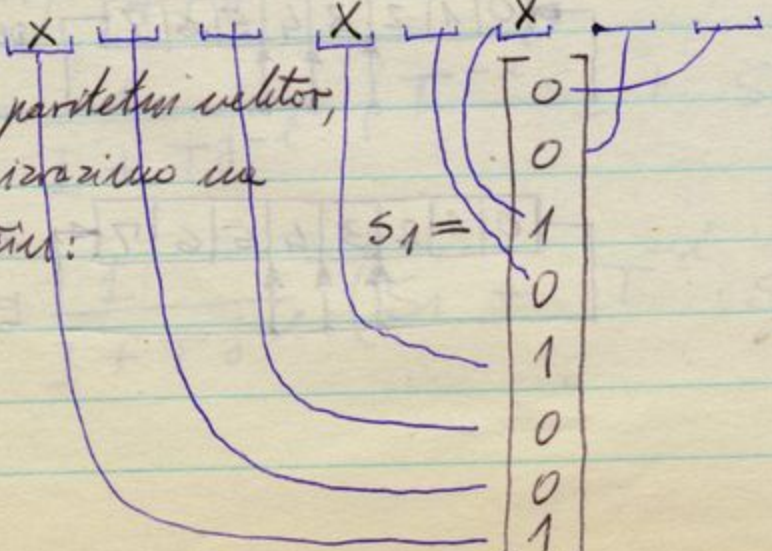 X X X
paritetni vektor,
izrazimo na
s1 =
0
0
1
0
1
0
0
1